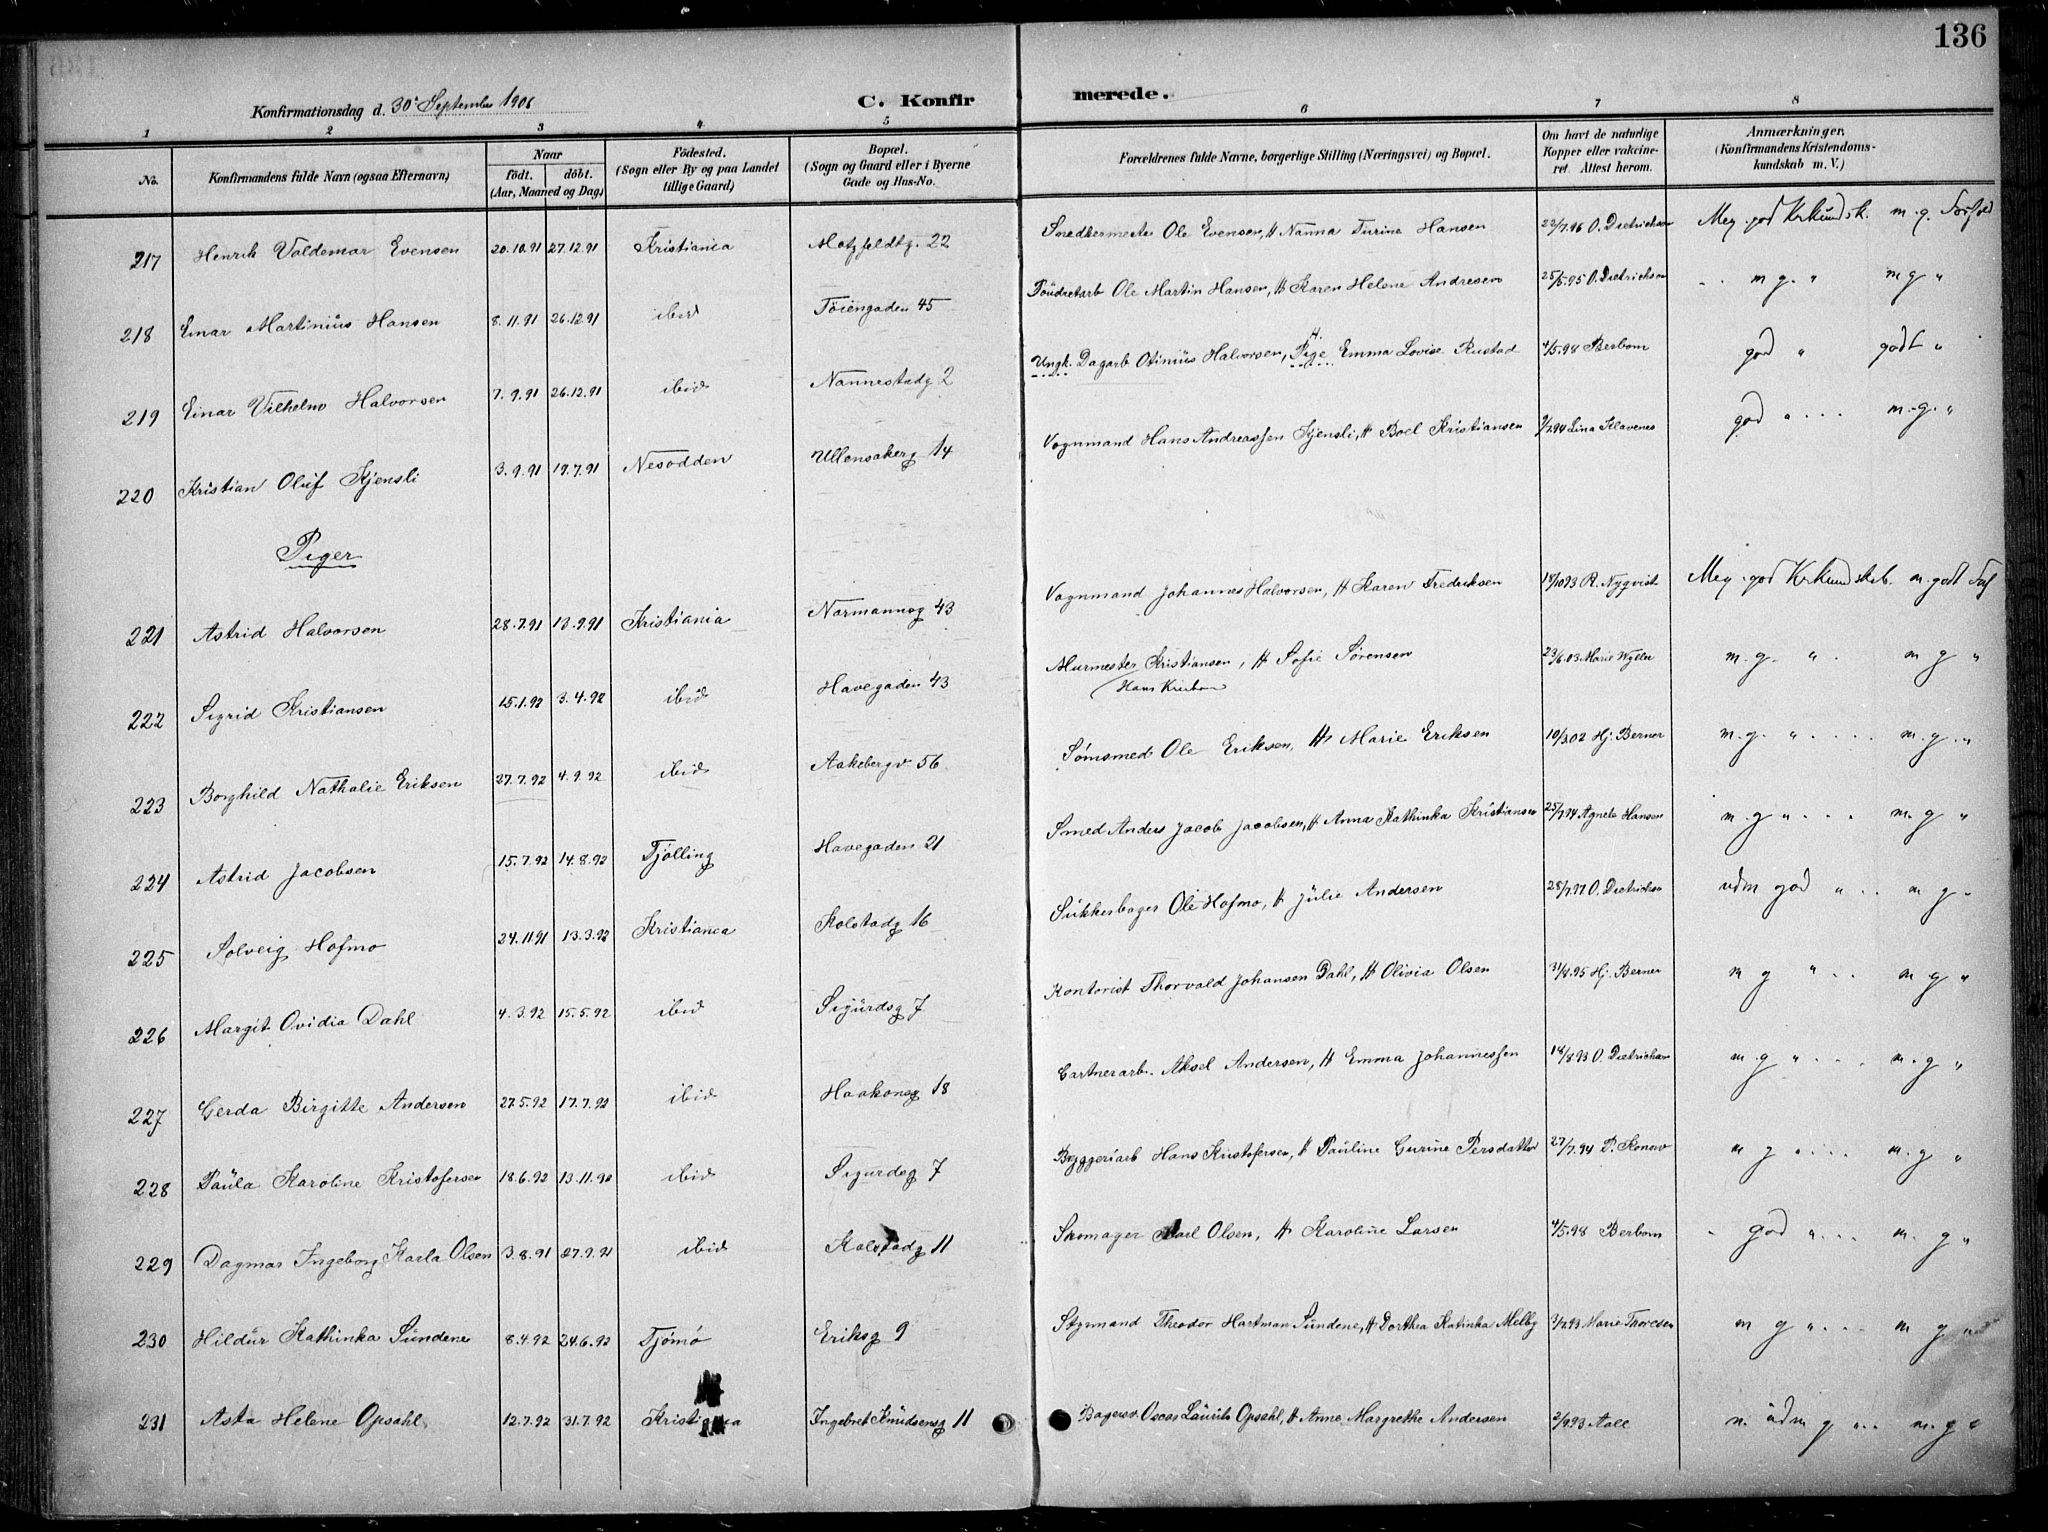 136
Konfirmationsdag d. 30' September 1906 C. Konfirmerede.
1 2 3 4 5 6 7 8
No. Konfirmandens fulde Navn (ogsaa Efternavn) Naar født. døbt. (Aar, Maaned og Dag) Fødested. (Sogn eller By og paa Landet tillige Gaard) Bopæl. (Sogn og Gaard eller i Byerne Gade og Hus-No. Forældrenes fulde Navne, borgerlige Stilling (Næringsvei) og Bopæl. Om havt de naturlige Kopper eller vakcineret. Attest herom. Anmærkninger. (Konfirmandens Kristendomskundskab m. V.)
217 Henrik Valdemar Evensen 20.10.91 27.12.91 Kristiania Motzfeldtg. 22 Snedkermester Ole Evensen, H Nanna Turine Hansen 22/7.96 O. Dietrichson Meg. god Krkundsk. m. g. Forhold
218 Einar Martinius Hansen 8.11.91 26.12.91 ibid Töiengaden 45 Poudretarb Ole Martin Hansen, H Karen Helene Andresen 25/5.95 O. Dietrichson m g. " m g "
219 Einar Vilhelm Halvorsen 7.9.91 26.12.91 ibid Nannestadg 2 Ungk. Dagarb Otinius Halvorsen, Pige Emma Lovise Rustad 4/5.98 Berbom god " godt "
220 Kristian Oluf Kjensli 3.9.91 19.7.91 Nesodden Ullensakerg 14 Vognmand Hans Andreassen Kjensli, H Boel Kristiansen /7.94 Lina Klavenes god " . . . m. g. "
Piger
221 Astrid Halvorsen 28.7.91 13.9.91 Kristiania Normannsg 43 Vognmand Johannes Halvorsen, H Karen Fredriksen 18/10.93 R. Nyqvist Meg. god Krkundskab. m. godt Forh
222 Sigrid Kristiansen 15.1.92 3.4.92 ibid Havegaden 43 Murmester Kristiansen, H Sofie Sørensen 23/6.03 Marie Wyller m. g. " m g "
Hans Kristian
223 Borghild Nathalie Eriksen 27.7.92 4.9.92 ibid Aakebergv 56 Sømsmed Ole Eriksen, H Marie Eriksen 10/3.02 Hj. Berner m. g. " . . . . m. g. "
224 Astrid Jacobsen 15.7.92 14.8.92 Tjølling Havegaden 21 Smed Anders Jacob Jacobsen, H Anna Kathinka Kristiansen 25/7.94 Agnete Hansen m. g " . . . m. g "
225 Solveig Hofmo 24.11.91 13.3.92 Kristiania Kolstadg 16 Sukkerbager Ole Hofmo, H Julie Andersen 28/7.97 O. Dietrichson udm god " . . m g "
226 Margit Ovidia Dahl 4.3.92 15.5.92 ibid Sigurdsg 7 Kontorist Thorvald Johansen Dahl, H Olivia Olsen 31/8.95 Hj. Berner m g " . . m g "
227 Gerda Birgitte Andersen 27.5.92 17.7.92 ibid Haakonsg 18 Gartnerarb. Aksel Andersen, H Emma Johannessen 18/8.93 O. Dietrichson m. g " . . . m. g "
228 Paula Karoline Kristofersen 18.6.92 13.11.92 ibid Sigurdsg 7 Byggeriarb Hans Kristofersen, H Pauline Gurine Persdatter 27/7.94 P. Konow m g " . . . m. g "
229 Dagmar Ingeborg Karla Olsen 3.8.91 27.9.91 ibid Kolstadg 11 Skomager Karl Olsen, H Karoline Larsen 4/5.98 Berbom god " . . . m. g "
230 Hildur Kathinka Sundene 8.4.92 24.6.92 Tjømø Eriksg 9 Styrmand Theodor Hartman Sundene, H Dorthea Katinka Melby /7.93 Marie Thoresen m g " . . . m g "
231 Asta Helene Opsahl 12.7.92 31.7.92 Kristiania Ingebret Knudsensg 11 Bagersv. Oscar Laurits Opsahl, H Anne Margrethe Andersen 2/9.93 Aall n. udm g " . . m. g "